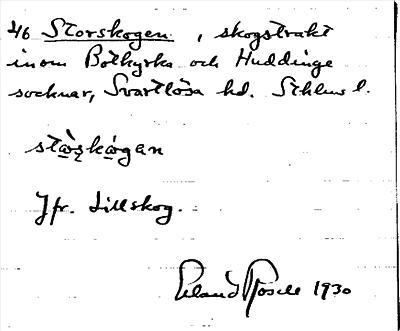 46 Storskogen, skogstrakt
inom Botkyrka och Huddinge
socknar, Svartlösa hd. Sthlms l.
stò̱ʂkó̱gan
Jfr. Lillskog.
Erland Rosell 1930